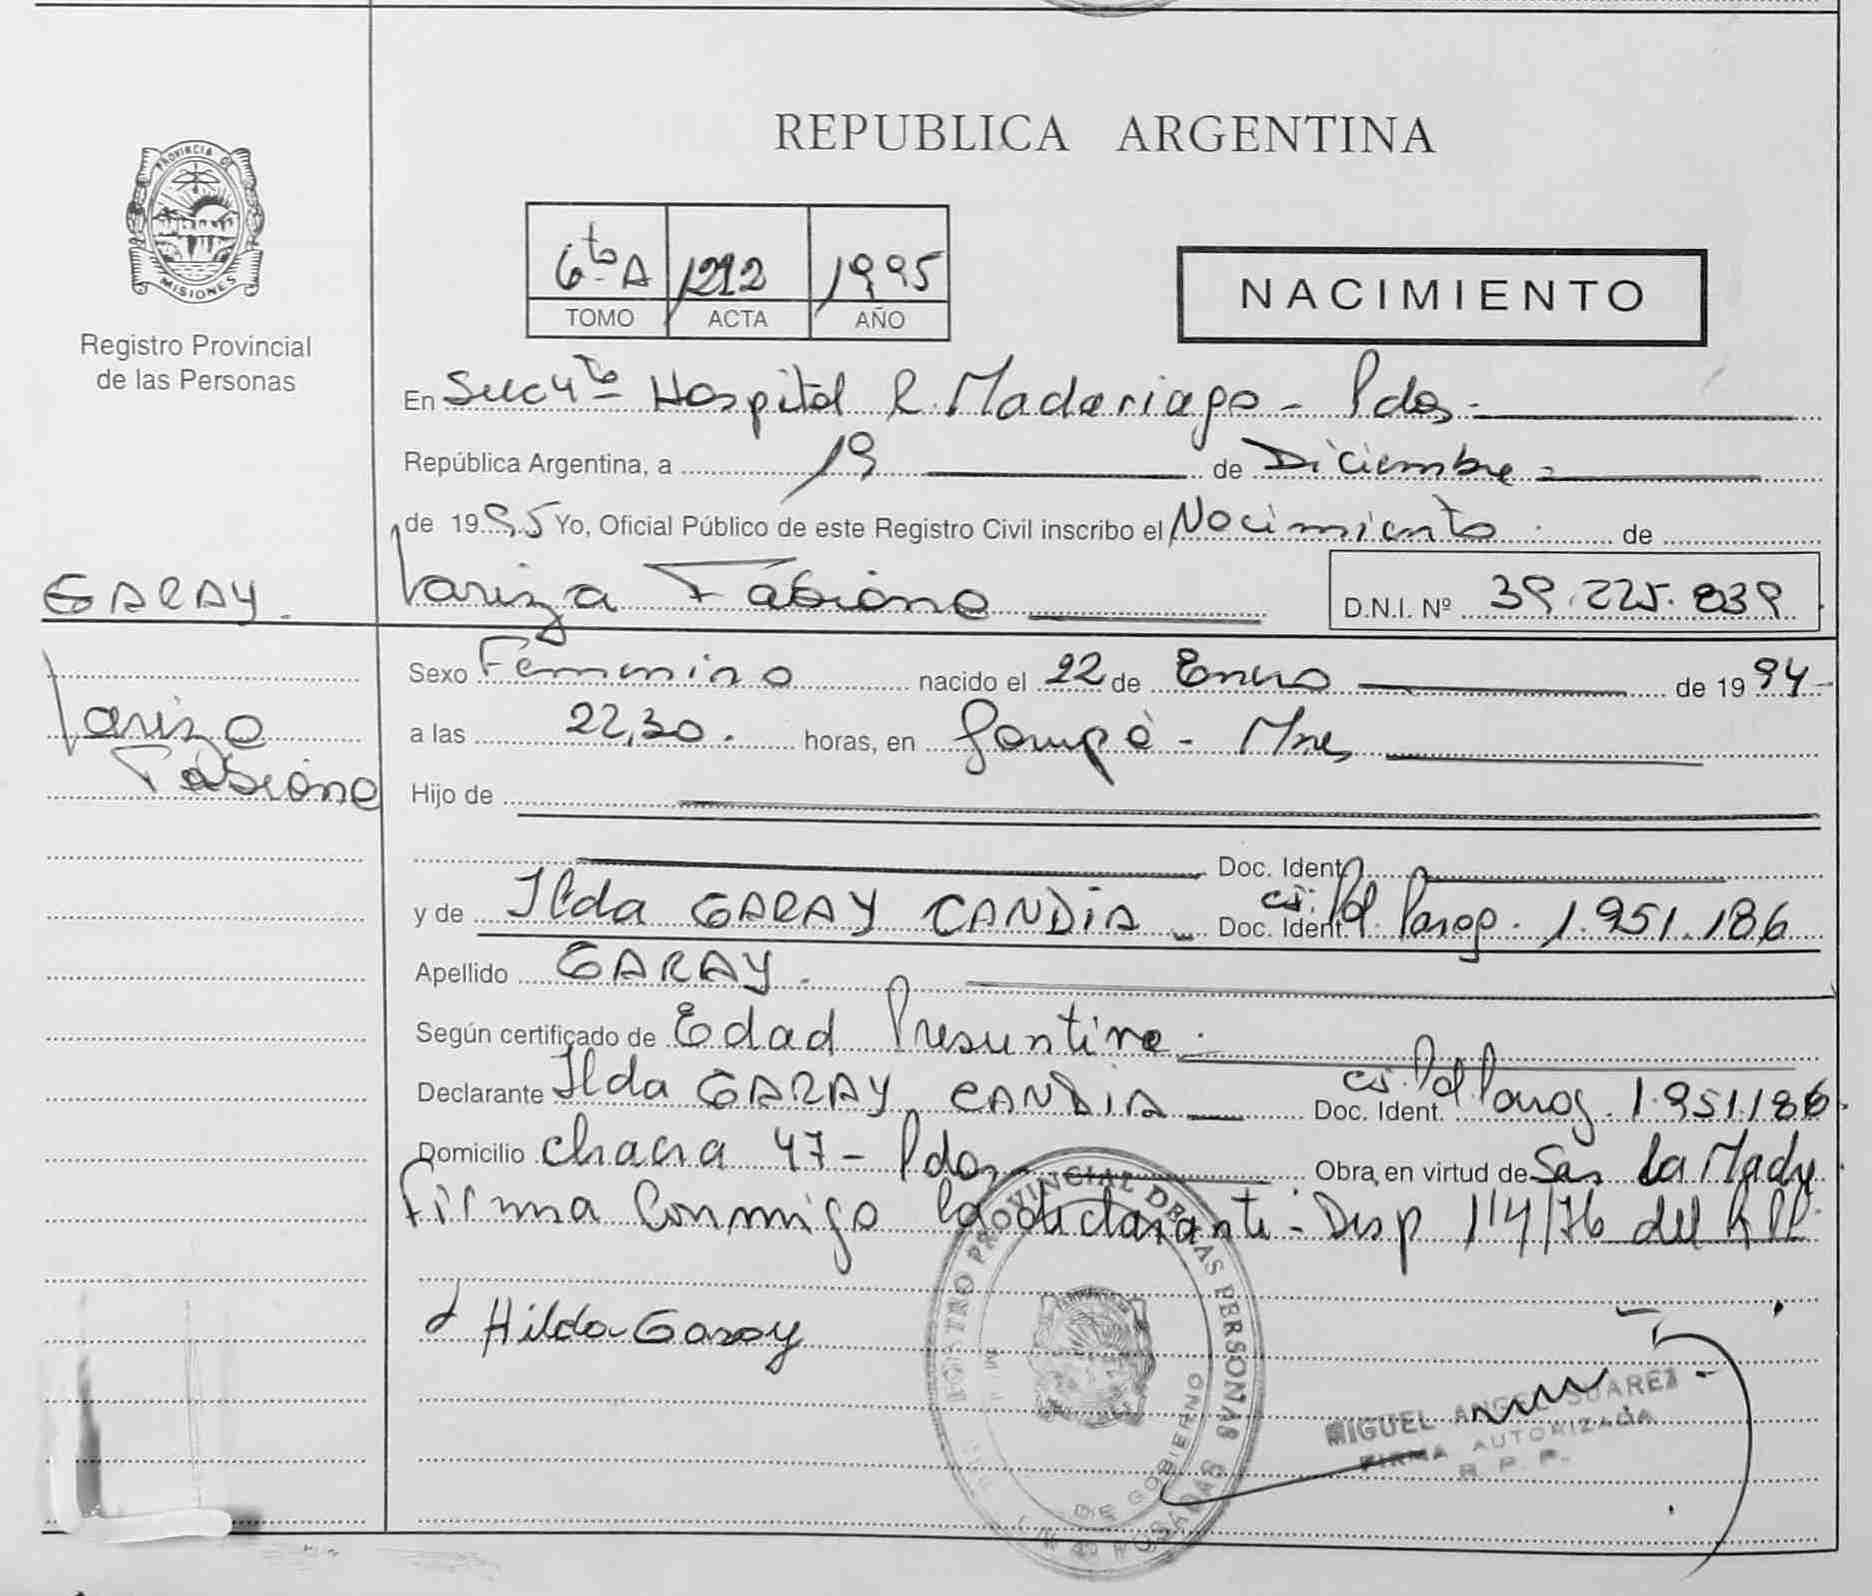 REPUBLICA ARGENTINA
PROVINCIA DE
MISIONES
Registro Provincial
de las Personas
6to A 1212 1995
TOMO ACTA AÑO
NACIMIENTO
En Suc 4ta Hospital R. Madariaga - Pdas -
República Argentina, a 19 de Diciembre -
de 1995 Yo, Oficial Público de este Registro Civil inscribo el Nacimiento de
GARAY. Yariza Fabiana D.N.I. Nº 39.225.839
Sexo Femenino nacido el 22 de Enero de 1994-
Yariza
a las 22,30. horas, en Garupá - Mnes
Fabiana
Hijo de
Doc. Ident.
y de Ilda GARAY CANDIA - Doc. Ident. ci. Pol Parag. 1.951.186
Apellido GARAY.
Según certificado de Edad Presuntiva -
Declarante Ilda GARAY CANDIA Doc. Ident. ci. Pol Parag. 1.951.186
Domicilio chacra 47 - Pdas, Obra, en virtud de Ser La Madre
Firma Conmigo la declarante - Disp 114/76 del RPP.
Hilda Garay
REGISTRO PROVINCIAL DE LAS PERSONAS
DE GOBIERNO
POSADAS
MIGUEL ANGEL SUAREZ
FIRMA AUTORIZADA
R. P. P.